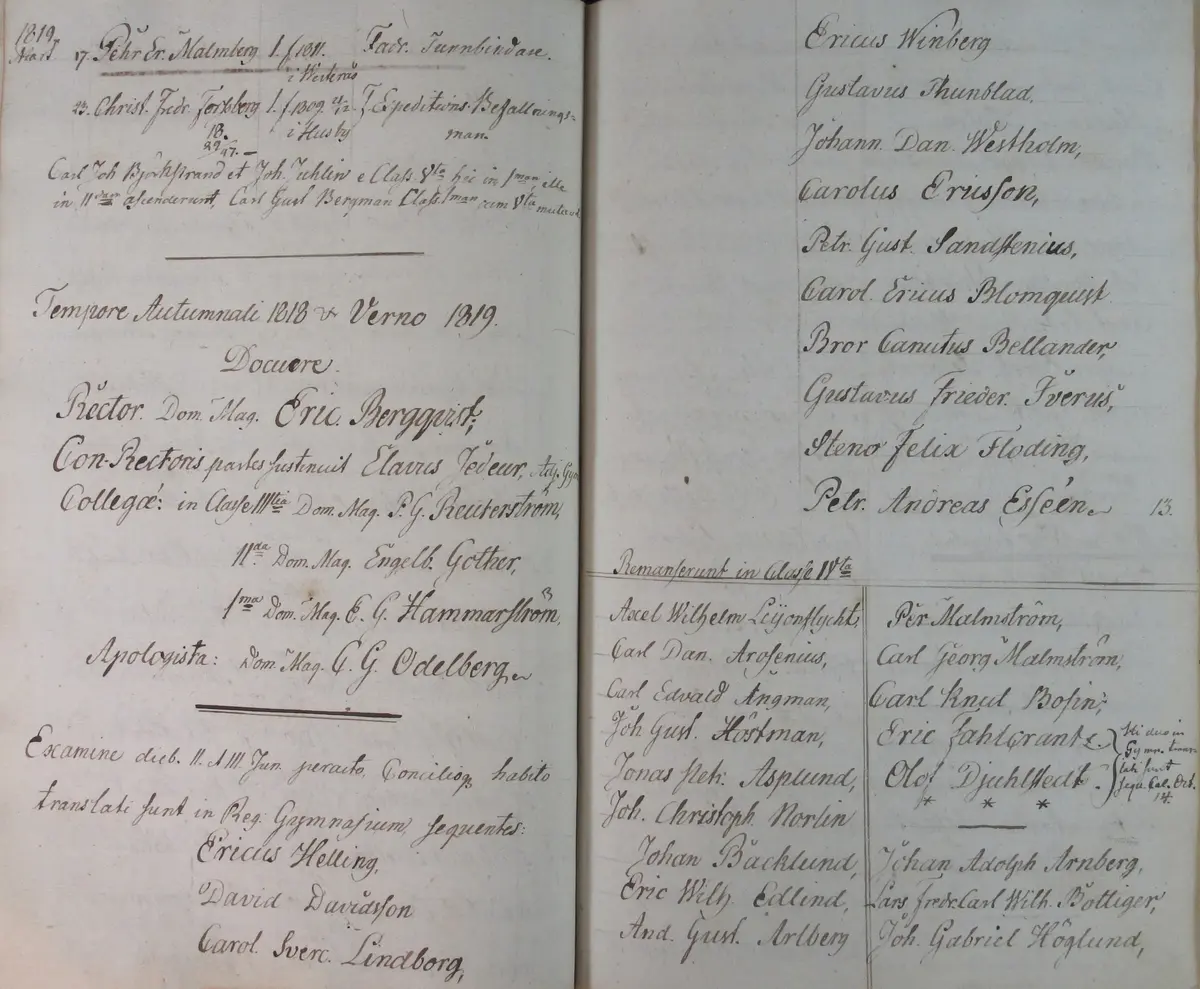 1819.
Mart. 17. Pehr Er. Malmberg 1. f. 1811. Fadr. Turnbindare.
i Westerås
23. Christ. Fredr. Forsberg 1. f. 1809 Expeditions-Befallnings-
18. i Husby man.
Carl Joh Björkstrand et Joh. Juhlin e Class. Vta hic in 1man, ille
in IIdam ascenderunt, Carl Gust Bergman Class. 1man cum Vta mutavit
Tempore Autumnali 1818 & Verno 1819.
Docuere.
Rector. Dom. Mag. Eric. Bergqvist;
Con-Rectoris partes sustinuit Elavus Jedeur, Adj. Gym
Collegæ: in Classe IIItia Dom. Mag. P. G. Reuterström,
IIda Dom. Mag. Engelb. Gother,
1ma Dom. Mag. E. G. Hammarström,
Apologista: Dom. Mag. C. G. Odelberg.
Examine dieb. II. & III. Jun. peracto, Concilioq. habito
translati sunt in Reg. Gymnasium, sequentes:
Ericus Helling,
David Davidsson
Carol. Sveric. Lindborg,
Ericus Winberg
Gustavus Thunblad.
Johann. Dan. Westholm,
Carolus Ericsson,
Petr. Gust. Sandstenius,
Carol. Ericus Blomquist
Bror Canutus Bellander,
Gustavus Frieder. Iverus,
Steno Felix Floding,
Petr. Andreas Esséen. 13.
Remanserunt in Classe IVta
Axel Wilhelm Leijonflycht,
Carl Dan. Arosenius,
Carl Edvald Ångman,
Joh Gust. Höstman,
Jonas Petr. Asplund,
Joh. Christoph. Norlin
Johan Bäcklund,
Eric Wilh. Edlind,
And. Gust. Arlberg
Per Malmström,
Carl Georg Malmström,
Carl Knut Bosin;
Eric Fahlcrantz. Hi duo in
Gymn. trans-
Olof Djuhlstedt. lati sunt
sequ. Cal. Oct.
* * * 14.
Johan Adolph Arnberg,
Lars Fredr Carl Wilh. Böttiger,
Joh. Gabriel Höglund,